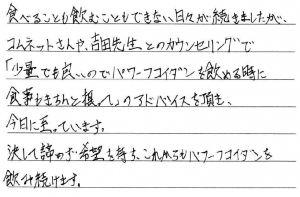 食べることも飲むこともできない日々が続きましたが、
コムネットさんや、吉田先生とのカウンセリングで
「少量でも良いのでパワーフコイダンを飲める時に
食事もきちんと摂って」のアドバイスを頂き、
今日に至っています。
決して諦めず希望を持ち、これからもパワーフコイダンを
飲み続けます。